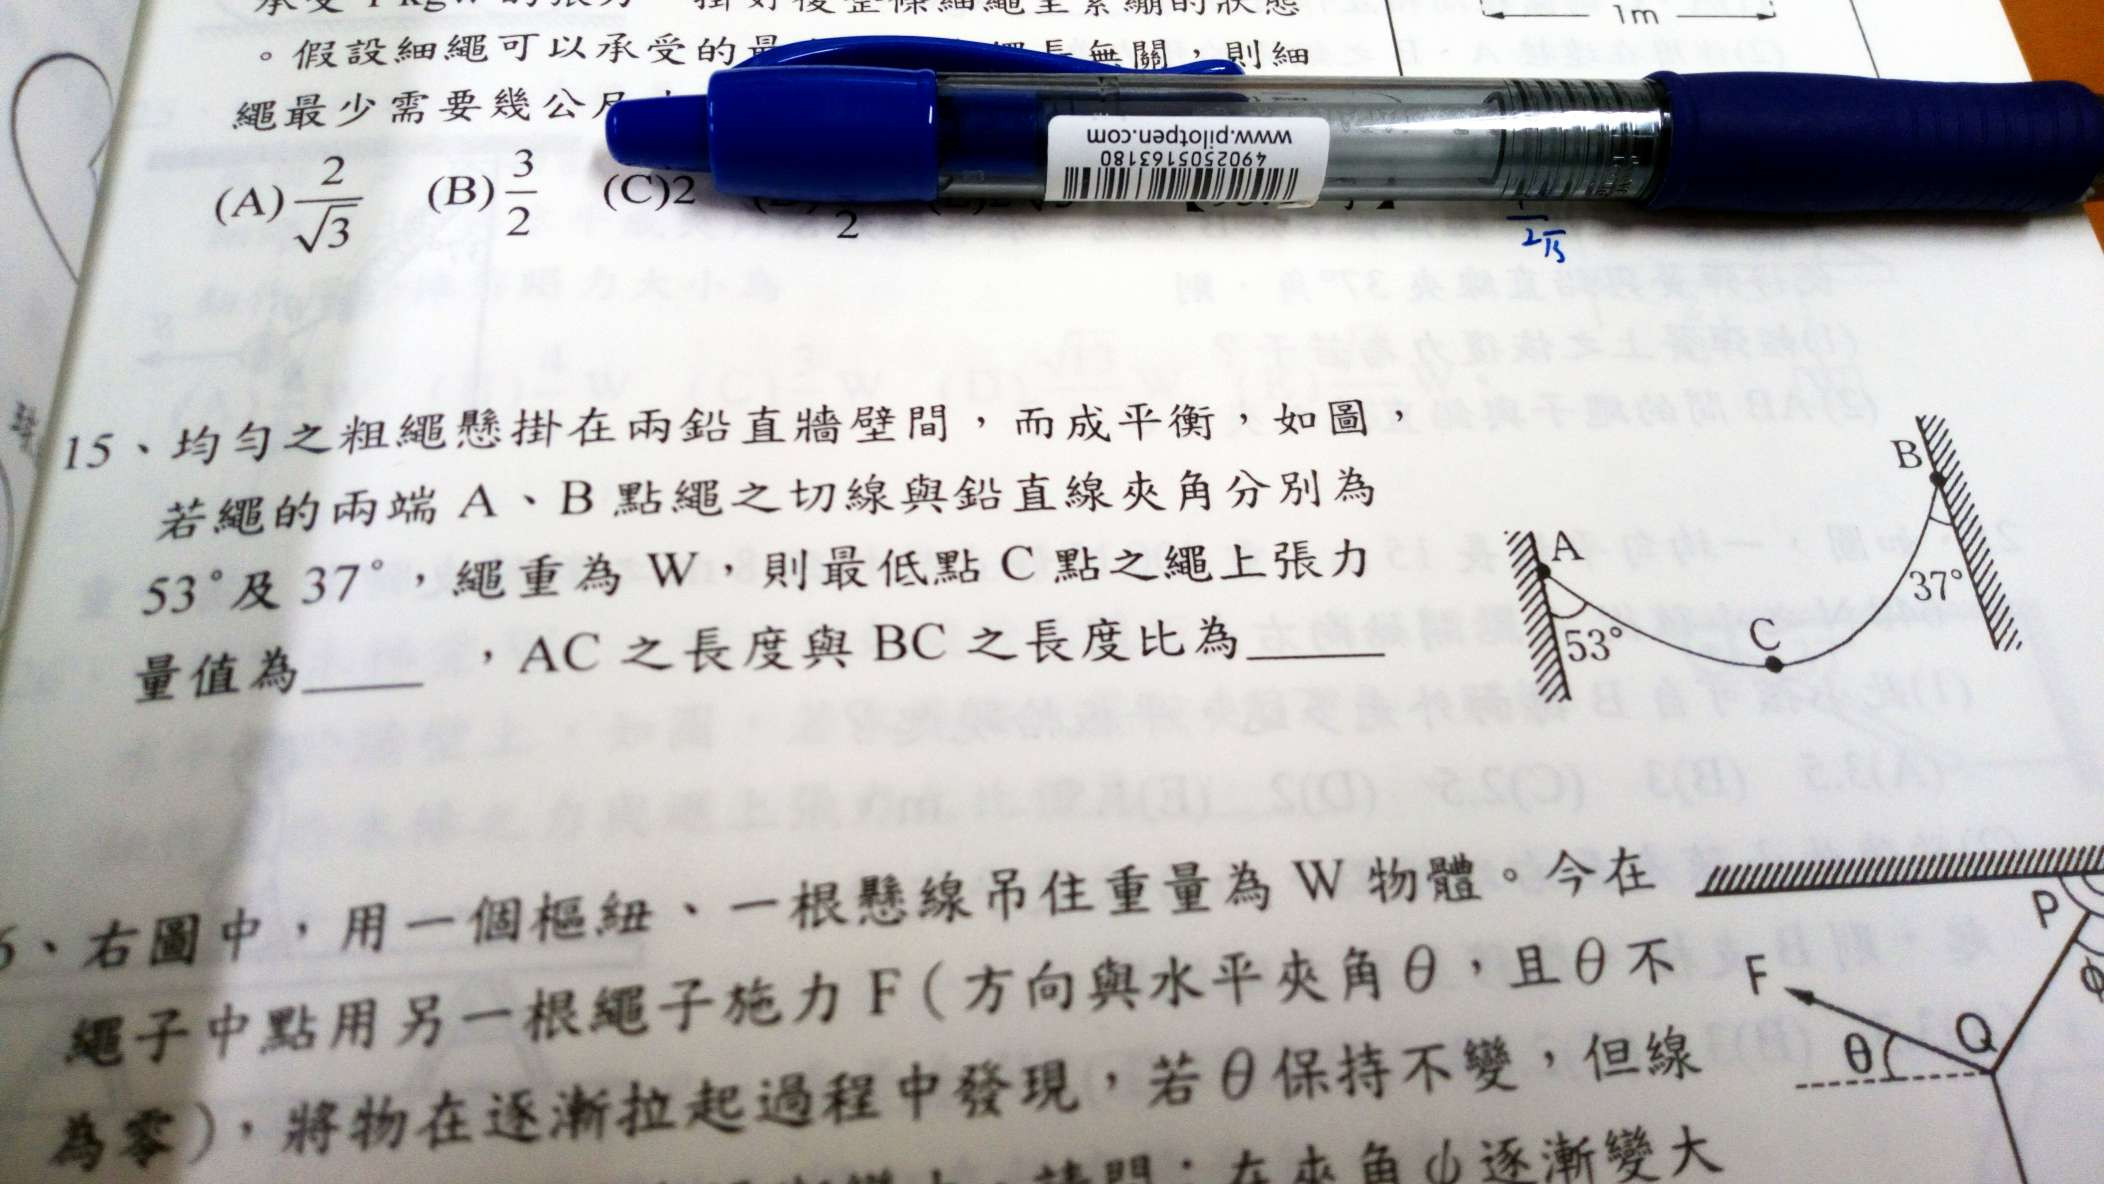 承受 1 kgw 的張力
掛好後整條細繩呈緊繃的狀態
。假設細繩可以承受的最
長無關，則細
繩最少需要幾公尺
(A) 2/√3 (B) 3/2 (C)2
2
1m
www.pilotpen.com
4902505163180
15、均勻之粗繩懸掛在兩鉛直牆壁間，而成平衡，如圖，
若繩的兩端 A、B 點繩之切線與鉛直線夾角分別為
53°及 37°，繩重為 W，則最低點 C 點之繩上張力
量值為____，AC 之長度與 BC 之長度比為____
A
53°
C
B
37°
6、右圖中，用一個樞紐、一根懸線吊住重量為 W 物體。今在
繩子中點用另一根繩子施力 F（方向與水平夾角θ，且θ不
為零），將物在逐漸拉起過程中發現，若θ保持不變，但線
請問：在夾角ψ逐漸變大
P
φ
F
Q
θ